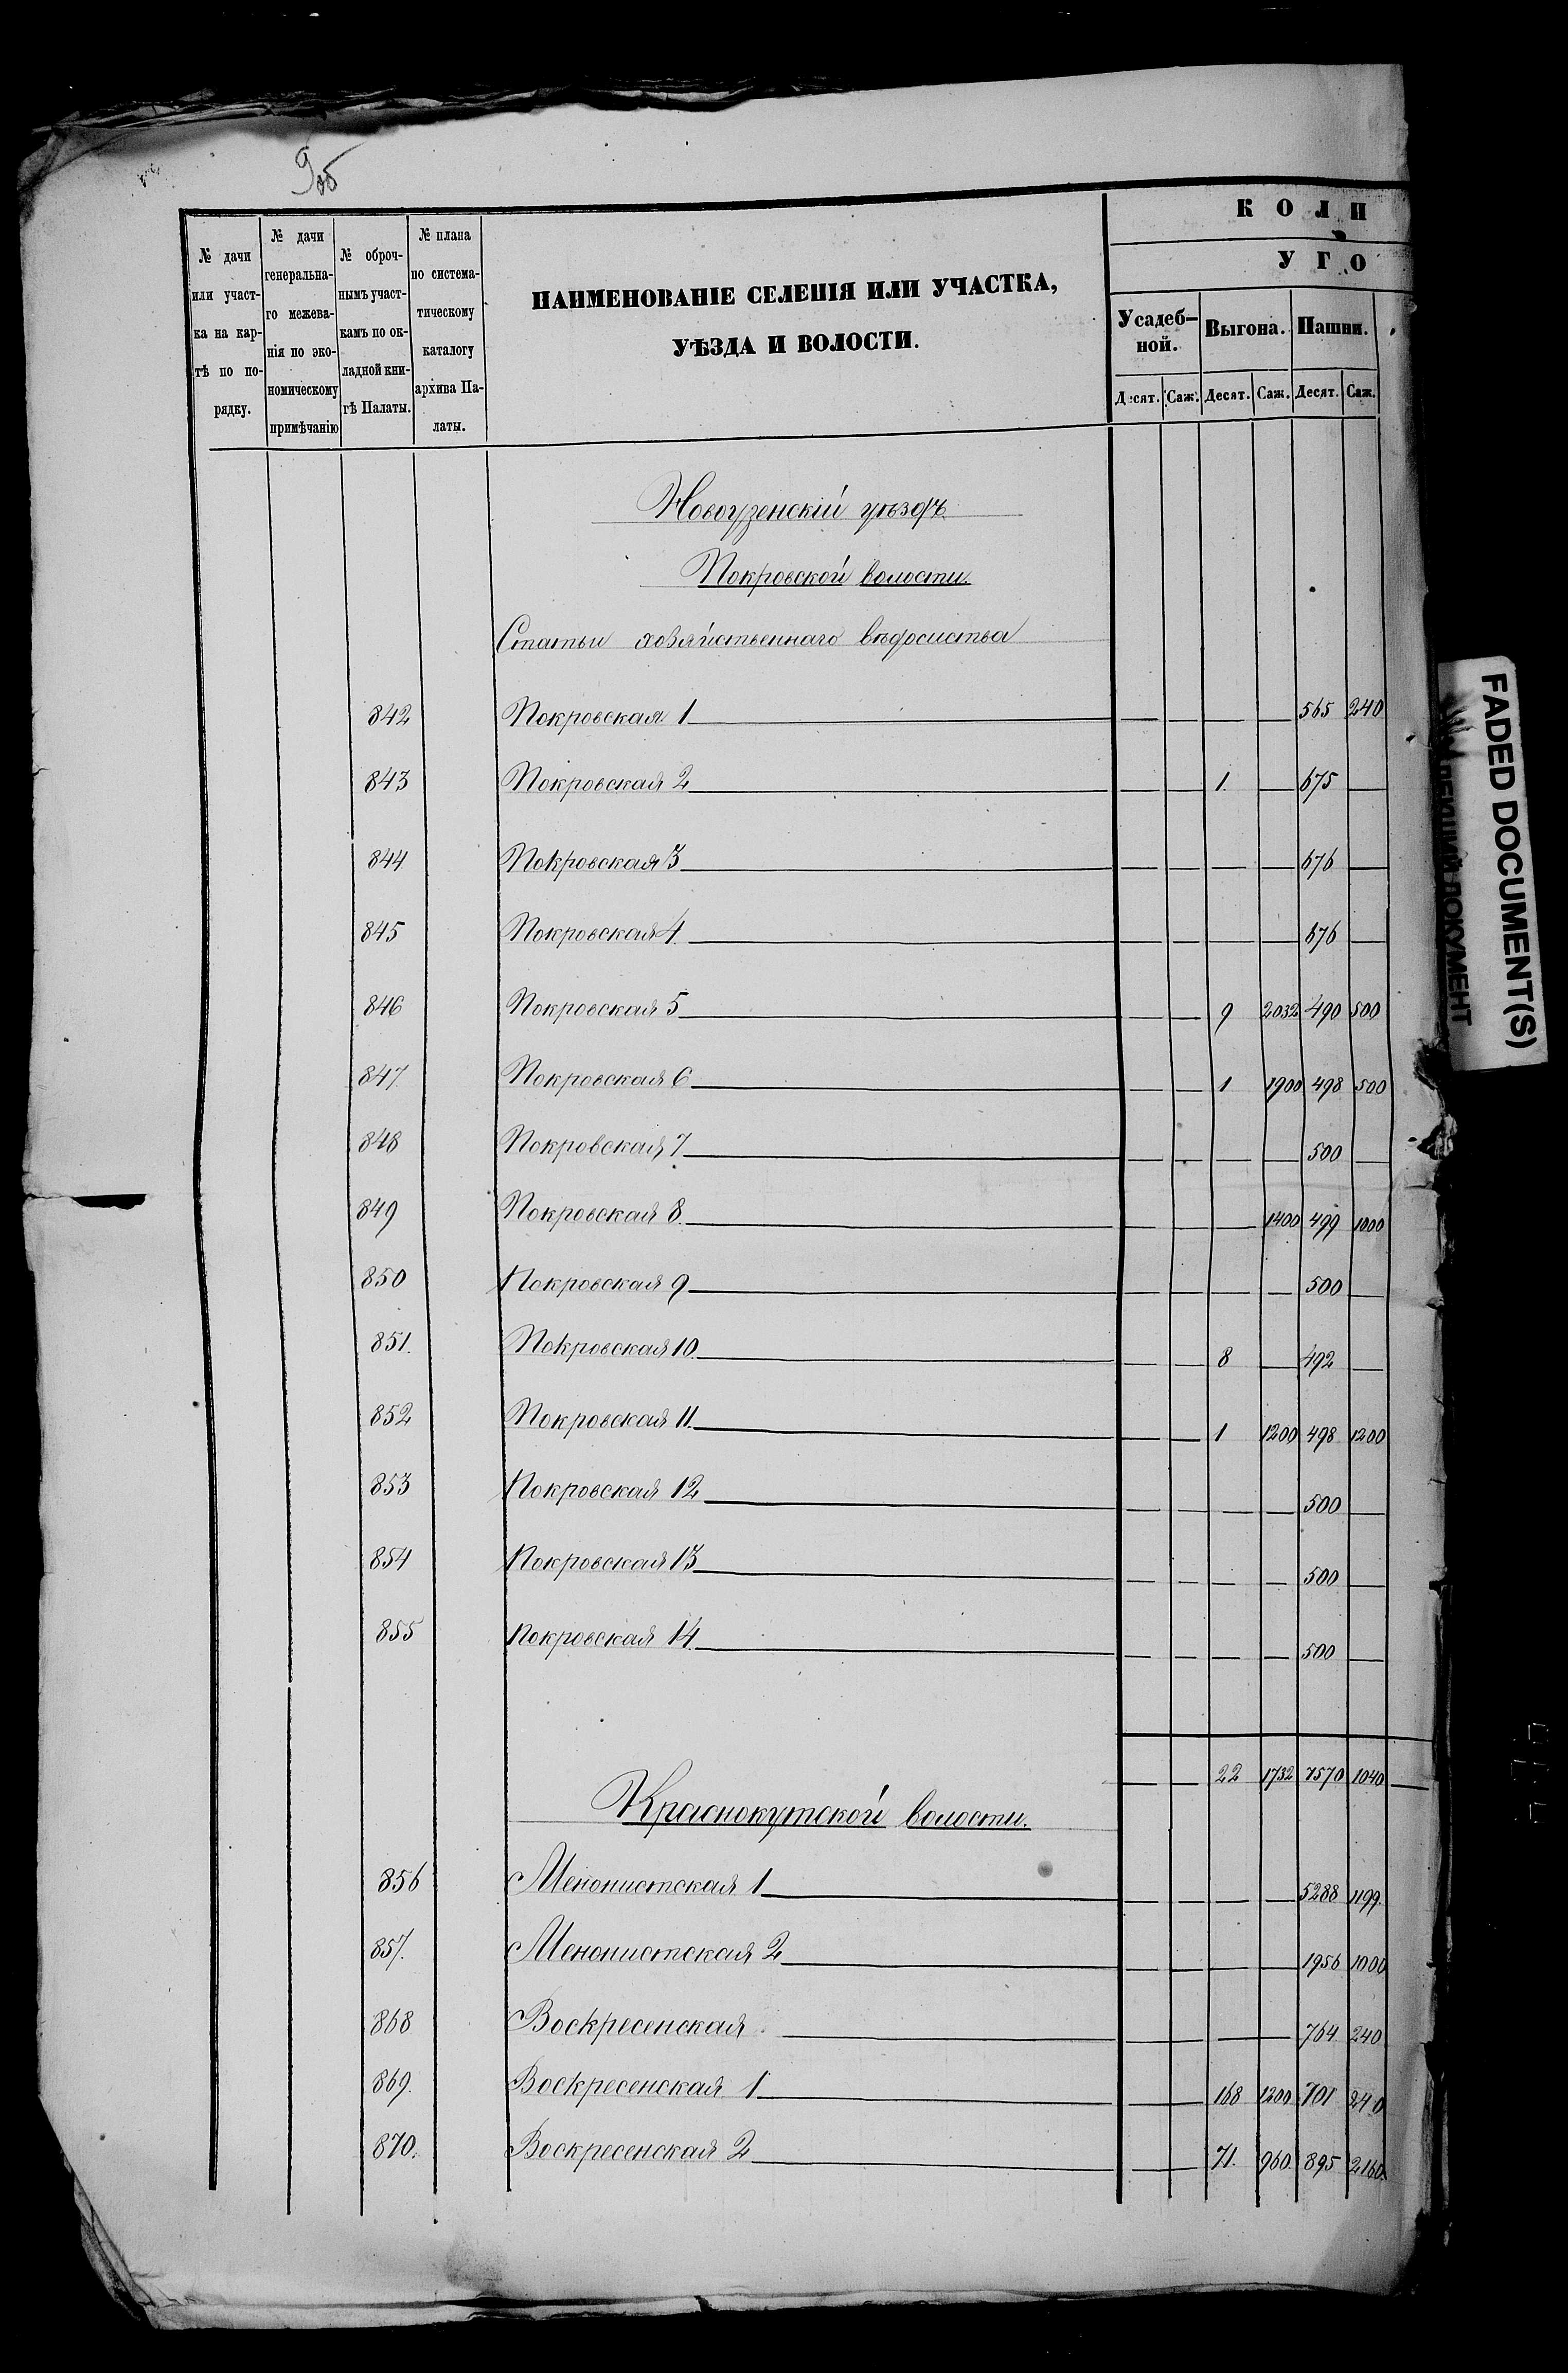 9об
К О Л И
У Г О
№ дачи или участ-ка на кар-тѣ по по-рядку.
№ дачи генеральна-го межева-нія по эко-номическому примѣчанію
№ оброч-нымъ участ-камъ по ок-ладной кни-гѣ Палаты.
№ плана по система-тическому каталогу архива Па-латы.
НАИМЕНОВАНІЕ СЕЛЕНІЯ ИЛИ УЧАСТКА,
УѢЗДА И ВОЛОСТИ.
Усадеб-ной. Выгона. Пашни.
Десят. Саж. Десят. Саж. Десят. Саж.
Новоузенскій уѣздъ
Покровской волости
Статьи хозяйственнаго
842 Покровская 1 — — — — 565 240
843 Покровская 2 — — 1. — 675 —
844 Покровская 3 — — — — 676 —
845 Покровская 4. — — — — 676 —
846 Покровская 5 — — 9 2032 490 500
847. Покровская 6 — — 1 1900 498 500
848 Покровская 7 — — — — 500 —
849 Покровская 8. — — — 1400 499 1000
850 Покровская 9 — — — — 500 —
851. Покровская 10. — — 8 — 492 —
852 Покровская 11. — — 1 1200 498 1200
853 Покровская 12 — — — — 500 —
854 Покровская 13 — — — — 500 —
855 Покровская 14. — — — — 500 —
— — 22 1732 7570 1040
Краснокутской волости.
856 Менонистская 1 — — — — 5288 1199.
857. Менонистская 2 — — — — 1956 1000
868 Воскресенская — — — — 764 240
869. Воскресенская 1 — — 168 1200 701 240
870. Воскресенская 2 — — 71. 960. 895 2160.
FADED DOCUMENT(S)
ДОКУМЕНТ